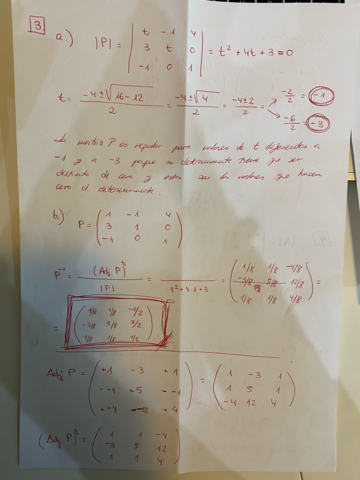 3
a.) |P| = | t -1 4 | 3 t 0 | -1 0 1 | = t² + 4t + 3 = 0
t = (-4 ± √(16 - 12)) / 2 = (-4 ± √4) / 2 = (-4 ± 2) / 2 = → -2/2 = -1
→ -6/2 = -3
La matriz P es regular para valores de t diferentes a
-1 y a -3 porque su determinante tiene que ser
distinto de cero y estos son los valores que hacen
cero el determinante.
b.) P = ( 1 -1 4 | 3 1 0 | -1 0 1 )
P⁻¹ = (Adj P)ᵗ / |P| = / 1² + 4·1 + 3 = ( 1/8 1/8 -4/8 | -3/8 5/8 12/8 | 1/8 1/8 4/8 ) =
= ( 1/8 1/8 -1/2 | -3/8 5/8 3/2 | 1/8 1/8 1/2 )
Adj P = ( +1 -3 +1 | --1 +5 --1 | +-4 --12 +4 ) = ( 1 -3 1 | 1 5 1 | -4 12 4 )
(Adj P)ᵗ = ( 1 1 -4 | -3 5 12 | 1 1 4 )